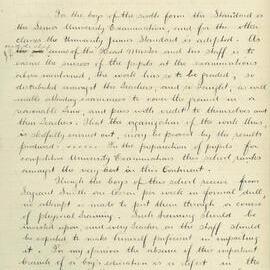 For the boys of the sixth form the Standard is
the Senior University Examination, and for the other
classes the University Junior Standard is satisfied. As
the aim of the Head Master and his staff is to
ensure the success of the pupils at the examinations
above mentioned, the work has to be graded, so
distributed amongst the teachers, and so taught, as will
enable attentive scholars to cover the ground in a
reasonable time, and pass with credit to themselves and
their teachers. That the organization of the work thus
is skilfully carried out, may be proved by the results
produced. In the preparation of pupils for
competitive University Examinations this school ranks
amongst the very best on this Continent.
Though the boys of this school receive from
Sergeant such due course per week in formal drill,
no attempt is made to put them through a course
of physical training. Such training should be
insisted upon, and every teacher on the staff should
be expected to make himself proficient in imparting
it. In my opinion the absence of this important
branch of a boy's education is a defect in the